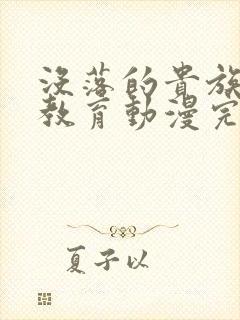 没落的貴族
教育動漫完
夏子以